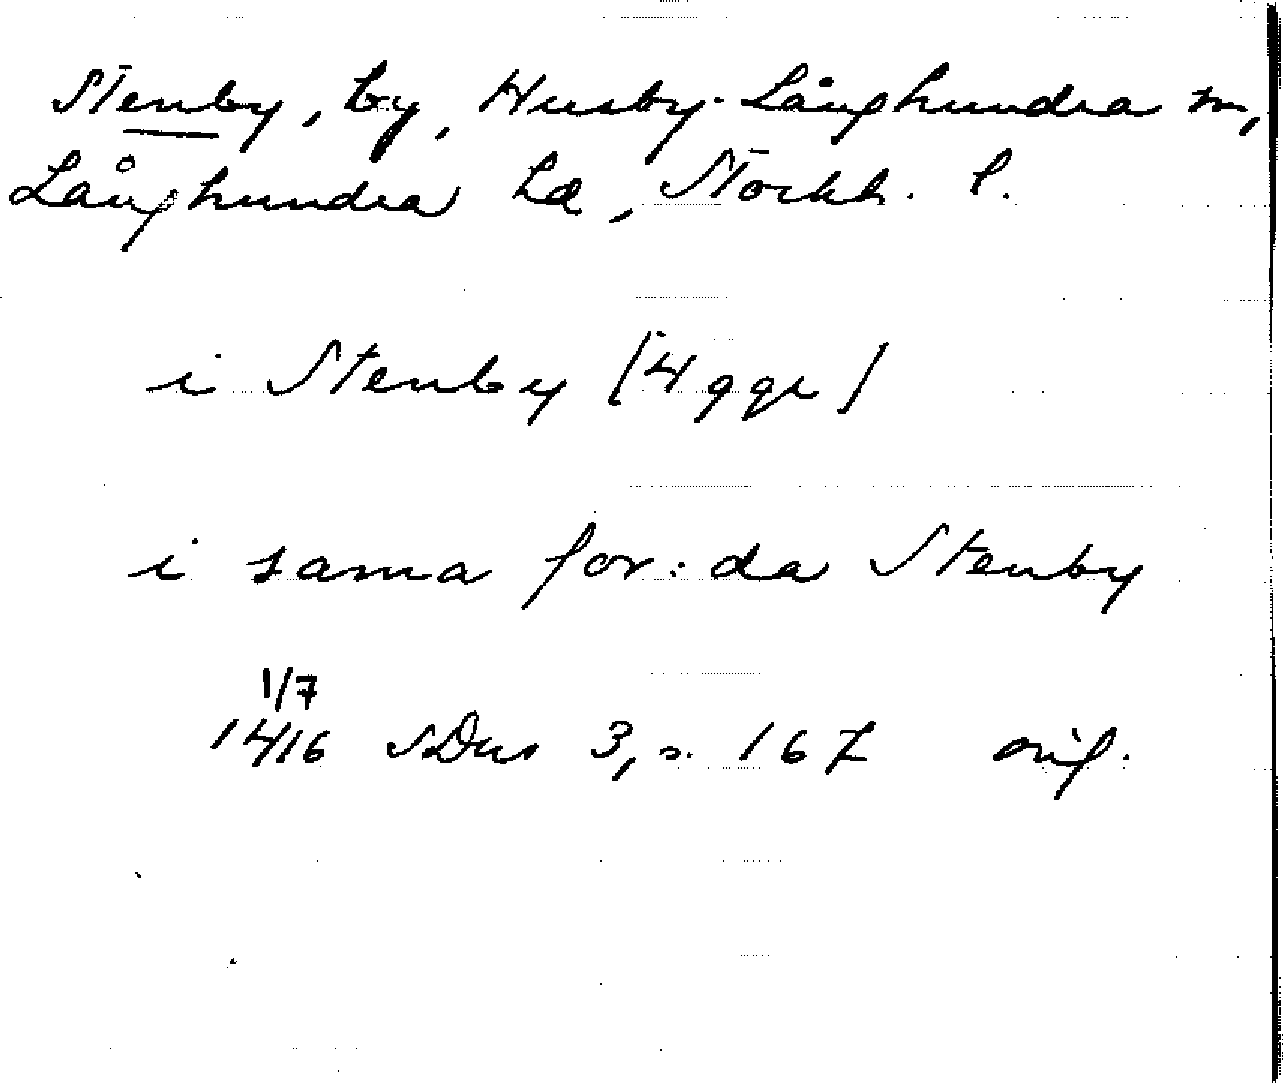 Stenby, by, Husby-Långhundra sn,
Långhundra hd, Stockh. l.
i Stenby (4 ggr)
i sama for: da Stenby
1/7
1416 SDns 3, s. 167 orig.